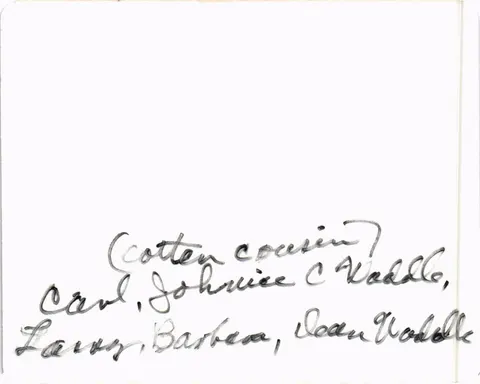 (Cotten cousin)
Carl, Johnice C Waddle,
Larry, Barbara, Dean Waddle